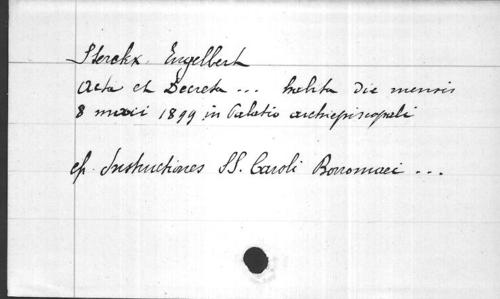 Sterckx Engelbert
Acta et Decreta ... habita die mensis
8 maii 1899 in Palatio archiepiscopali
cf. Instructiones SS. Caroli Borromaei ...